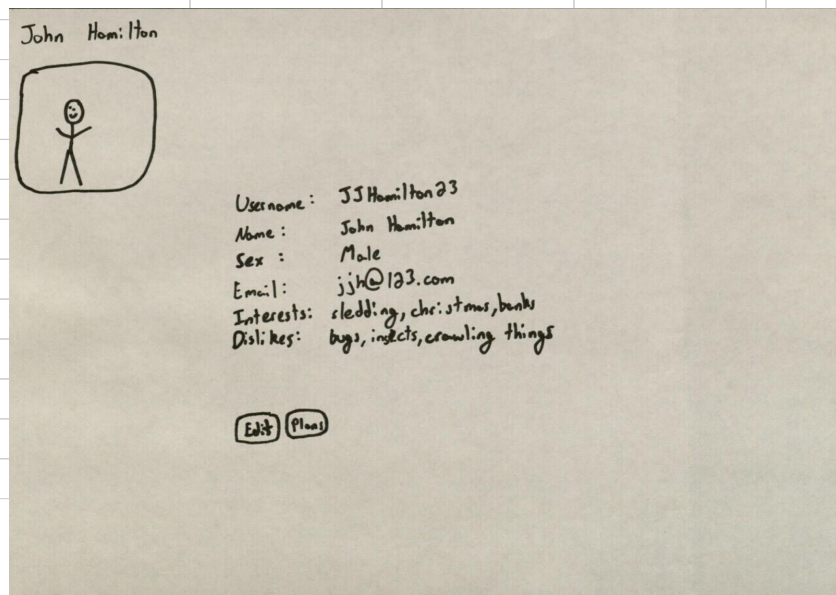 John Hamilton
Username: JJHamilton23
Name: John Hamilton
Sex : Male
Email: jjh@123.com
Interests: sledding, christmas, banks
Dislikes: bugs, insects, crawling things
Edit Plans